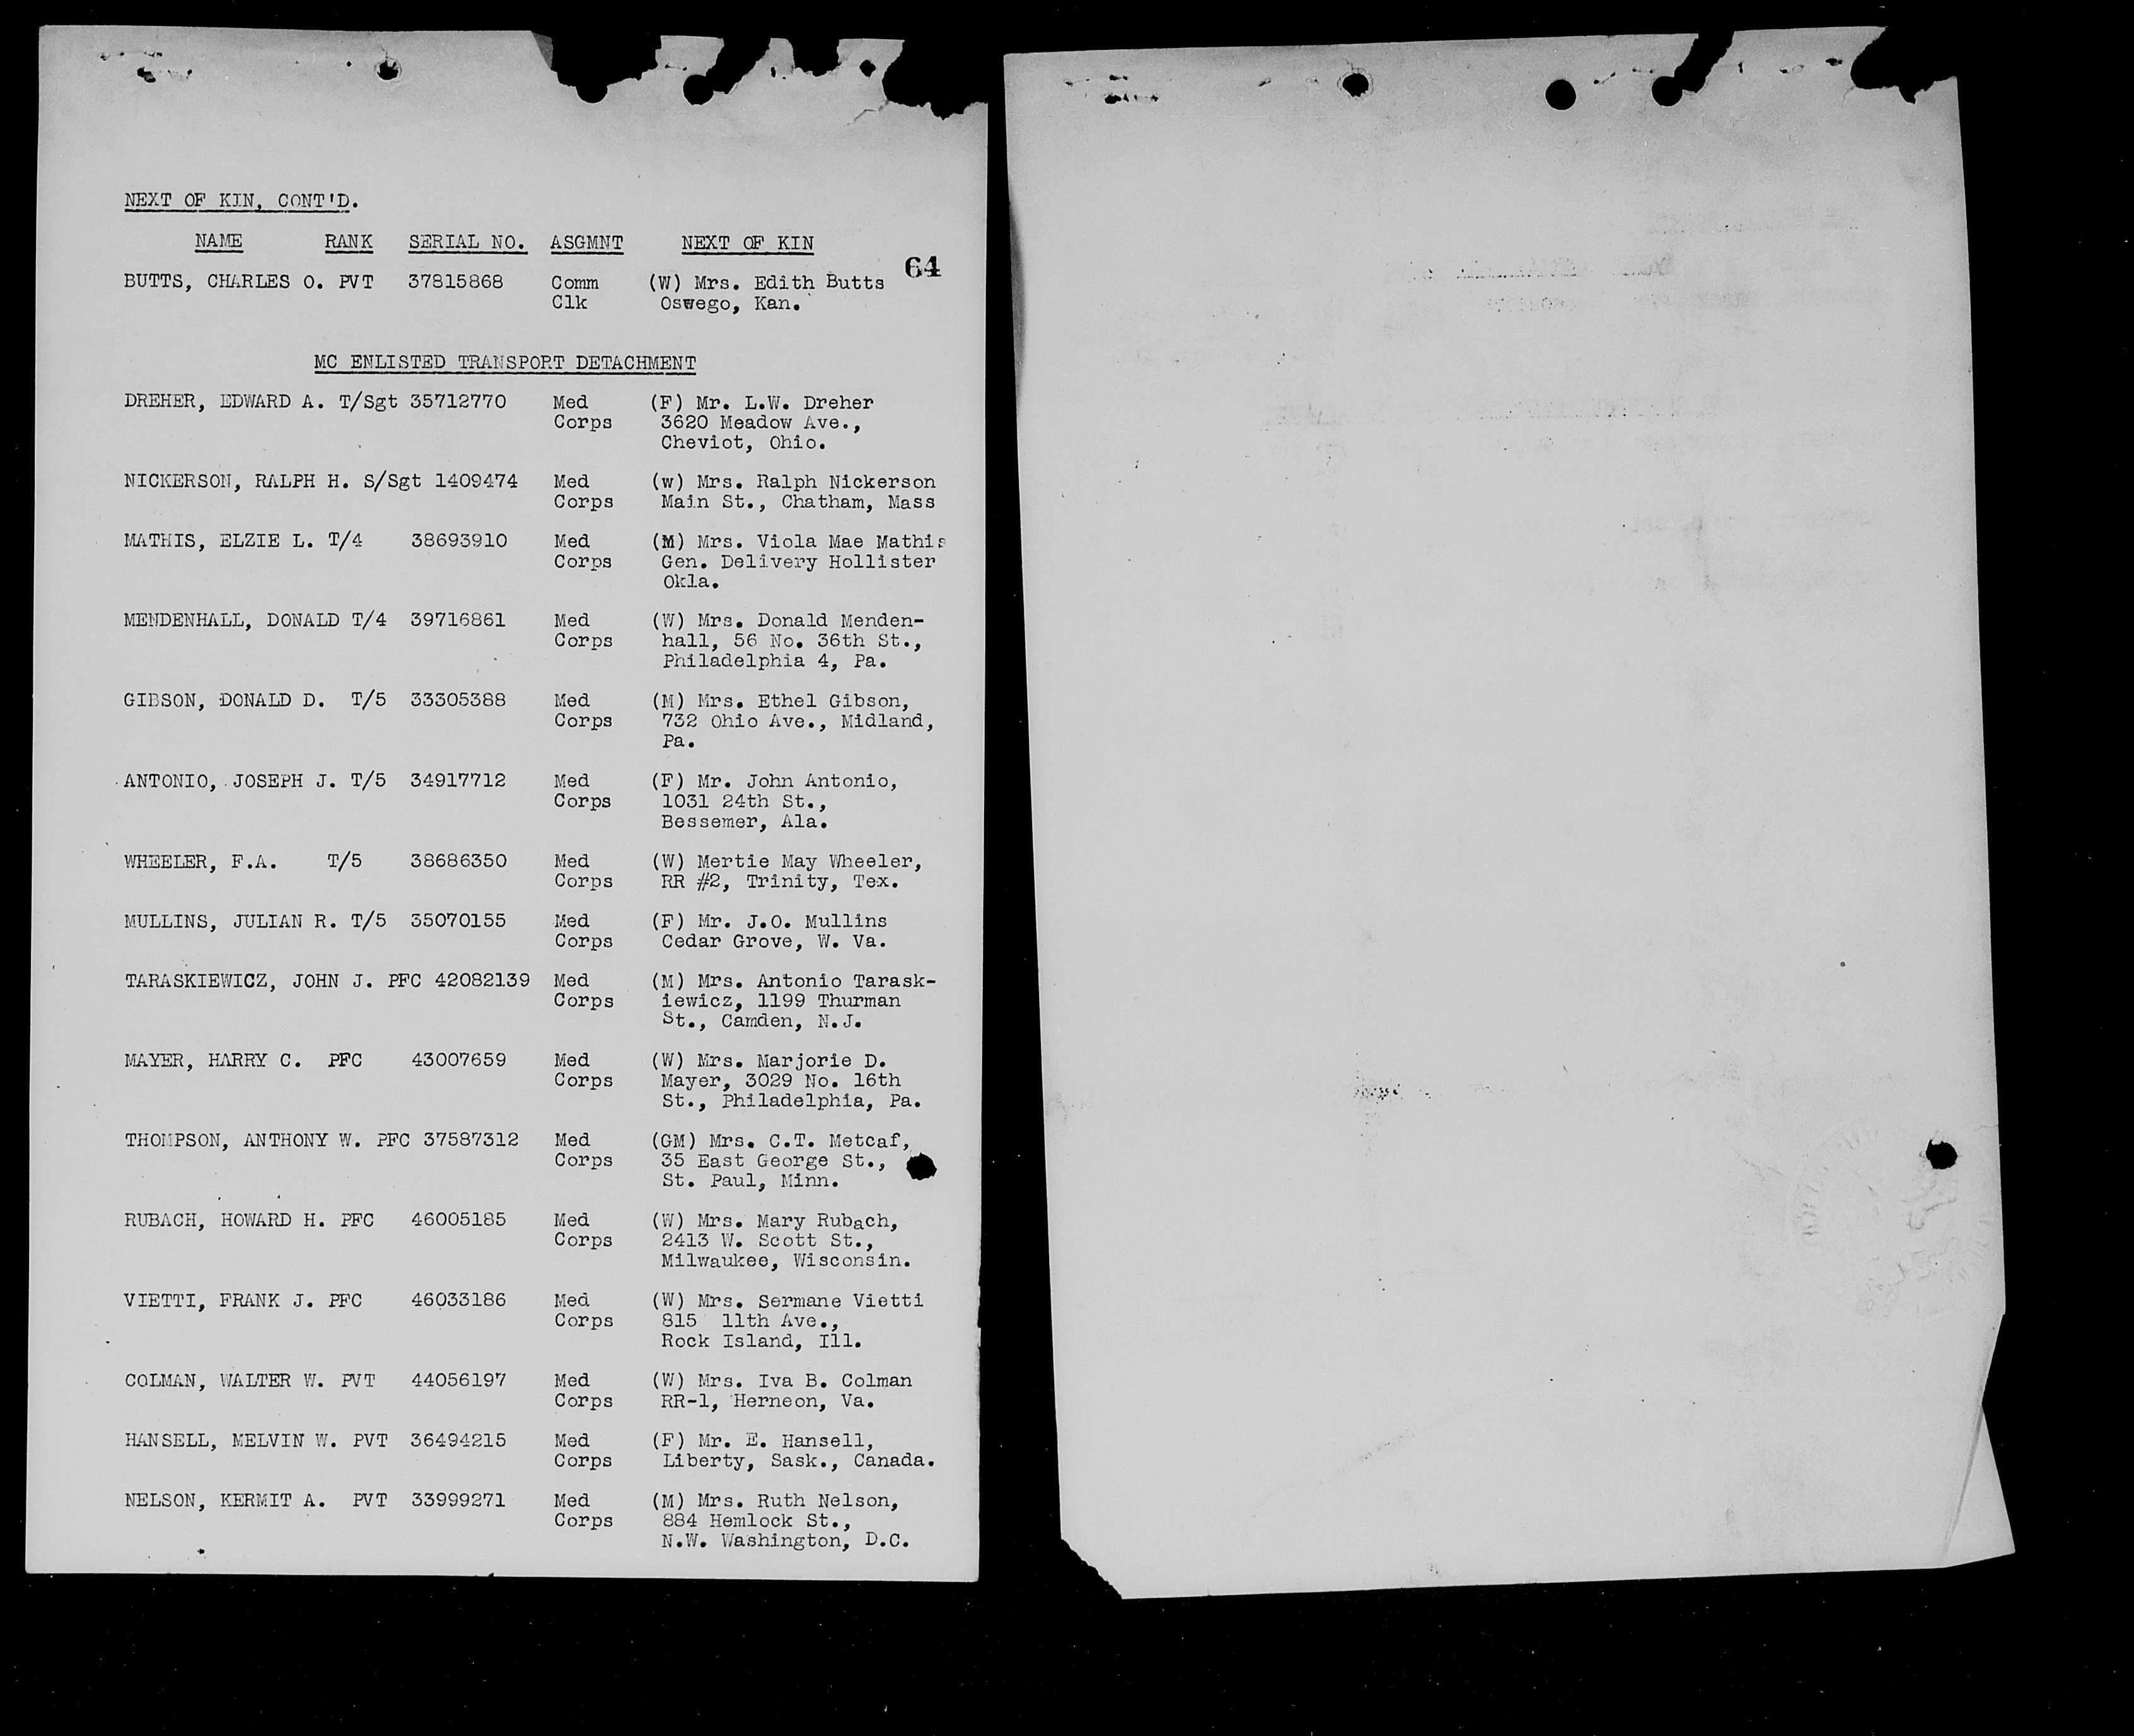 NEXT OF KIN, CONT'D.
NAME RANK SERIAL NO. ASGMNT NEXT OF KIN
64
BUTTS, CHARLES O. PVT 37815868 Comm (W) Mrs. Edith Butts
Clk Oswego, Kan.
MC ENLISTED TRANSPORT DETACHMENT
DREHER, EDWARD A. T/Sgt 35712770 Med (F) Mr. L.W. Dreher
Corps 3620 Meadow Ave.,
Cheviot, Ohio.
NICKERSON, RALPH H. S/Sgt 1409474 Med (w) Mrs. Ralph Nickerson
Corps Main St., Chatham, Mass
MATHIS, ELZIE L. T/4 38693910 Med (M) Mrs. Viola Mae Mathis
Corps Gen. Delivery Hollister
Okla.
MENDENHALL, DONALD T/4 39716861 Med (W) Mrs. Donald Menden-
Corps hall, 56 No. 36th St.,
Philadelphia 4, Pa.
GIBSON, DONALD D. T/5 33305388 Med (M) Mrs. Ethel Gibson,
Corps 732 Ohio Ave., Midland,
Pa.
ANTONIO, JOSEPH J. T/5 34917712 Med (F) Mr. John Antonio,
Corps 1031 24th St.,
Bessemer, Ala.
WHEELER, F.A. T/5 38686350 Med (W) Mertie May Wheeler,
Corps RR #2, Trinity, Tex.
MULLINS, JULIAN R. T/5 35070155 Med (F) Mr. J.O. Mullins
Corps Cedar Grove, W. Va.
TARASKIEWICZ, JOHN J. PFC 42082139 Med (M) Mrs. Antonio Tarask-
Corps iewicz, 1199 Thurman
St., Camden, N.J.
MAYER, HARRY C. PFC 43007659 Med (W) Mrs. Marjorie D.
Corps Mayer, 3029 No. 16th
St., Philadelphia, Pa.
THOMPSON, ANTHONY W. PFC 37587312 Med (GM) Mrs. C.T. Metcaf,
Corps 35 East George St.,
St. Paul, Minn.
RUBACH, HOWARD H. PFC 46005185 Med (W) Mrs. Mary Rubach,
Corps 2413 W. Scott St.,
Milwaukee, Wisconsin.
VIETTI, FRANK J. PFC 46033186 Med (W) Mrs. Sermane Vietti
Corps 815 11th Ave.,
Rock Island, Ill.
COLMAN, WALTER W. PVT 44056197 Med (W) Mrs. Iva B. Colman
Corps RR-1, Herneon, Va.
HANSELL, MELVIN W. PVT 36494215 Med (F) Mr. E. Hansell,
Corps Liberty, Sask., Canada.
NELSON, KERMIT A. PVT 33999271 Med (M) Mrs. Ruth Nelson,
Corps 884 Hemlock St.,
N.W. Washington, D.C.